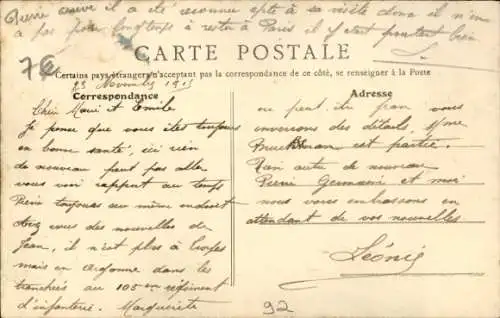 Pierre arrivé il a été reconnu apte à sa visite donc il n'en
a pas pour longtemps à rester à Paris il s'est pourtant bien
7€
CARTE POSTALE
Certains pays étrangers n'acceptant pas la correspondance de ce côté, se renseigner à la Poste
23 Novembre 1915
Correspondance
Adresse
Cher Marie et Emile
Je pense que vous êtes toujours
en bonne santé, ici rien
de nouveau peut pas aller
vous voir rapport au temps
Pierre toujours au même endroit
avez vous des nouvelles de
Jean, il n'est plus à
mais en Argonne dans les
tranchées au 105em régiment
d'infanterie. Marguerite
ne peut du gran vous
envoyons des détails, Mme
est partie.
Rien autre de nouveau
Pierre Germaine et moi
nous vous embrassons en
attendant de vos nouvelles
Léonie
92